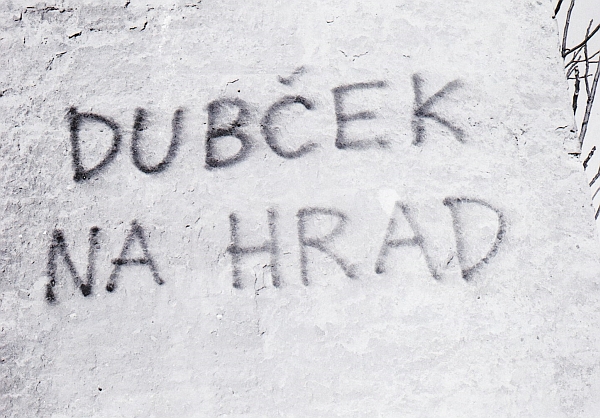 DUBČEK
NA HRAD